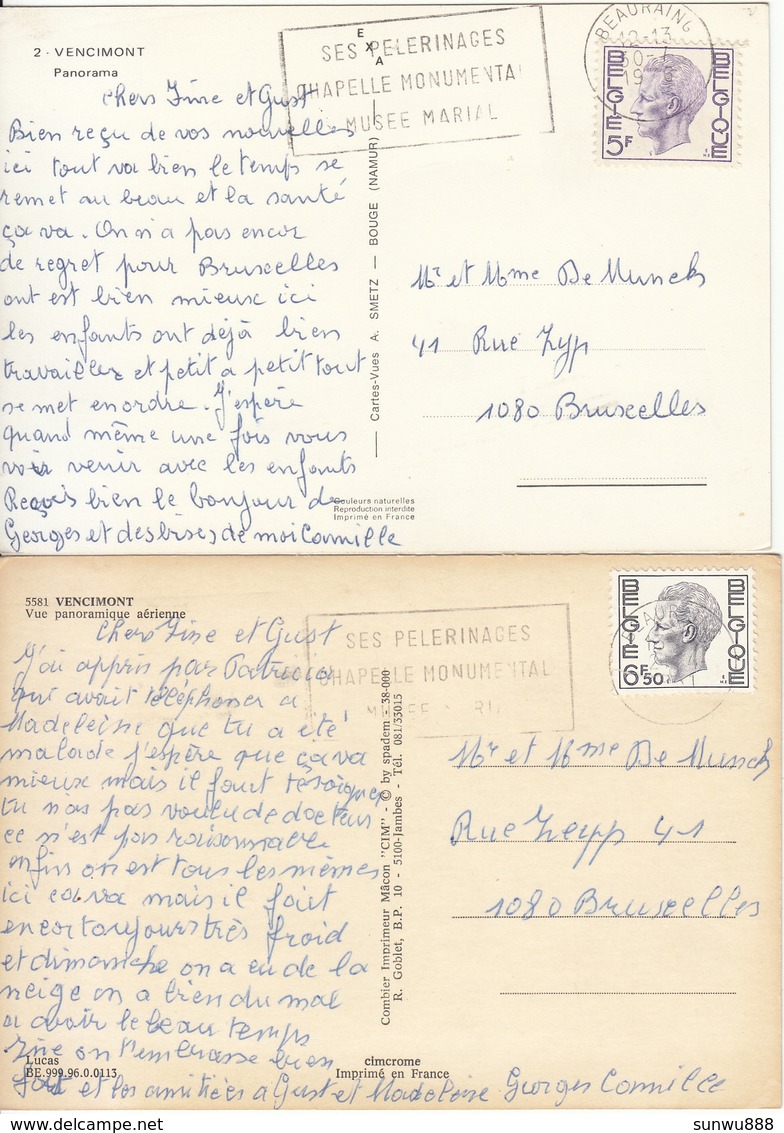 2 - VENCIMONT
Panorama
SES PELERINAGES
CHAPELLE MONUMENTAL
MUSEE MARIAL
BEAURAING
12-13
BELGIE
BELGIQUE
5F
Chers Fine et Gust
Bien reçu de vos nouvelles
ici tout va bien le temps se
remet au beau et la santé
ça va. On n'a pas encor
de regret pour Bruxelles
ont est bien mieux ici
les enfants ont déjà bien
travaillez et petit a petit tout
se met en ordre. J'espère
quand même une fois vous
voir venir avec les enfants
Reçois bien le bonjour de
Georges et des bises de moi Camille
Cartes-Vues A. SMETZ — BOUGE (NAMUR)
Mr et Mme De Munck
41 Rue Zyp
1080 Bruxelles
Couleurs naturelles
Reproduction interdite
Imprimé en France
5581 VENCIMONT
Vue panoramique aérienne
SES PELERINAGES
CHAPELLE MONUMENTAL
BELGIE
BELGIQUE
6F50
Chers Fine et Gust
J'ai appris par Patricia
qui avait téléphoner a
Madeleine que tu a été
malade j'espère que ça va
mieux mais il faut te soigner
tu n'as pas voulu de docteur
ce n'est pas raisonnable
enfin on est tous les mêmes
ici ça va mais il fait
encor toujours très froid
et dimanche on a eu de la
neige on a bien du mal
a avoir le beau temps
Fine on t'embrasse bien
fort et les amitiées a Gust et Madeleine Georges Camille
Combier Imprimeur Mâcon "CIM" - © by spadem - 38-000
R. Goblet, B.P. 10 - 5100-Jambes - Tél. 081/35015
Mr et Mme De Munck
Rue Zeyp 41
1080 Bruxelles
Lucas
BE.999.96.0.0113
cimcrome
Imprimé en France
sunwu888